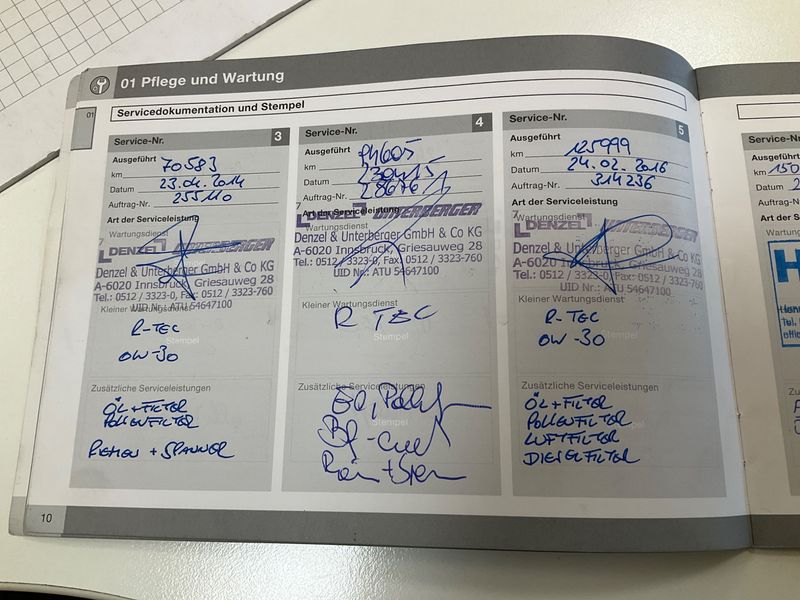 01 Pflege und Wartung
01
Servicedokumentation und Stempel
Service-Nr. 3
Ausgeführt
km 70583
Datum 23.04.2014
Auftrag-Nr. 255110
Art der Serviceleistung
Wartungsdienst
DENZEL UNTERBERGER
Denzel & Unterberger GmbH & Co KG
A-6020 Innsbruck, Griesauweg 28
Tel.: 0512 / 3323-0, Fax: 0512 / 3323-760
UID Nr.: ATU 54647100
Kleiner Wartungsdienst
R-TEC
0W-30
Stempel
Zusätzliche Serviceleistungen
ÖL + FILTER
POLLENFILTER
RIEMEN + SPANNER
Service-Nr. 4
Ausgeführt
km
Datum
Auftrag-Nr.
Art der Serviceleistung
Wartungsdienst
DENZEL UNTERBERGER
Denzel & Unterberger GmbH & Co KG
A-6020 Innsbruck, Griesauweg 28
Tel.: 0512 / 3323-0, Fax: 0512 / 3323-760
UID Nr.: ATU 54647100
Kleiner Wartungsdienst
R TEC
Stempel
Zusätzliche Serviceleistungen
Service-Nr. 5
Ausgeführt
km 125999
Datum 24.02.2016
Auftrag-Nr. 314236
Art der Serviceleistung
Wartungsdienst
DENZEL UNTERBERGER
Denzel & Unterberger GmbH & Co KG
A-6020 Innsbruck, Griesauweg 28
Tel.: 0512 / 3323-0, Fax: 0512 / 3323-760
UID Nr.: ATU 54647100
Kleiner Wartungsdienst
R-TEC
0W-30
Stempel
Zusätzliche Serviceleistungen
ÖL + FILTER
POLLENFILTER
LUFTFILTER
DIESELFILTER
10
Service-Nr.
Ausgeführt
km 150
Datum
Auftrag-Nr.
Art der Se
Wartungsd
Tel.
Zusätzlic